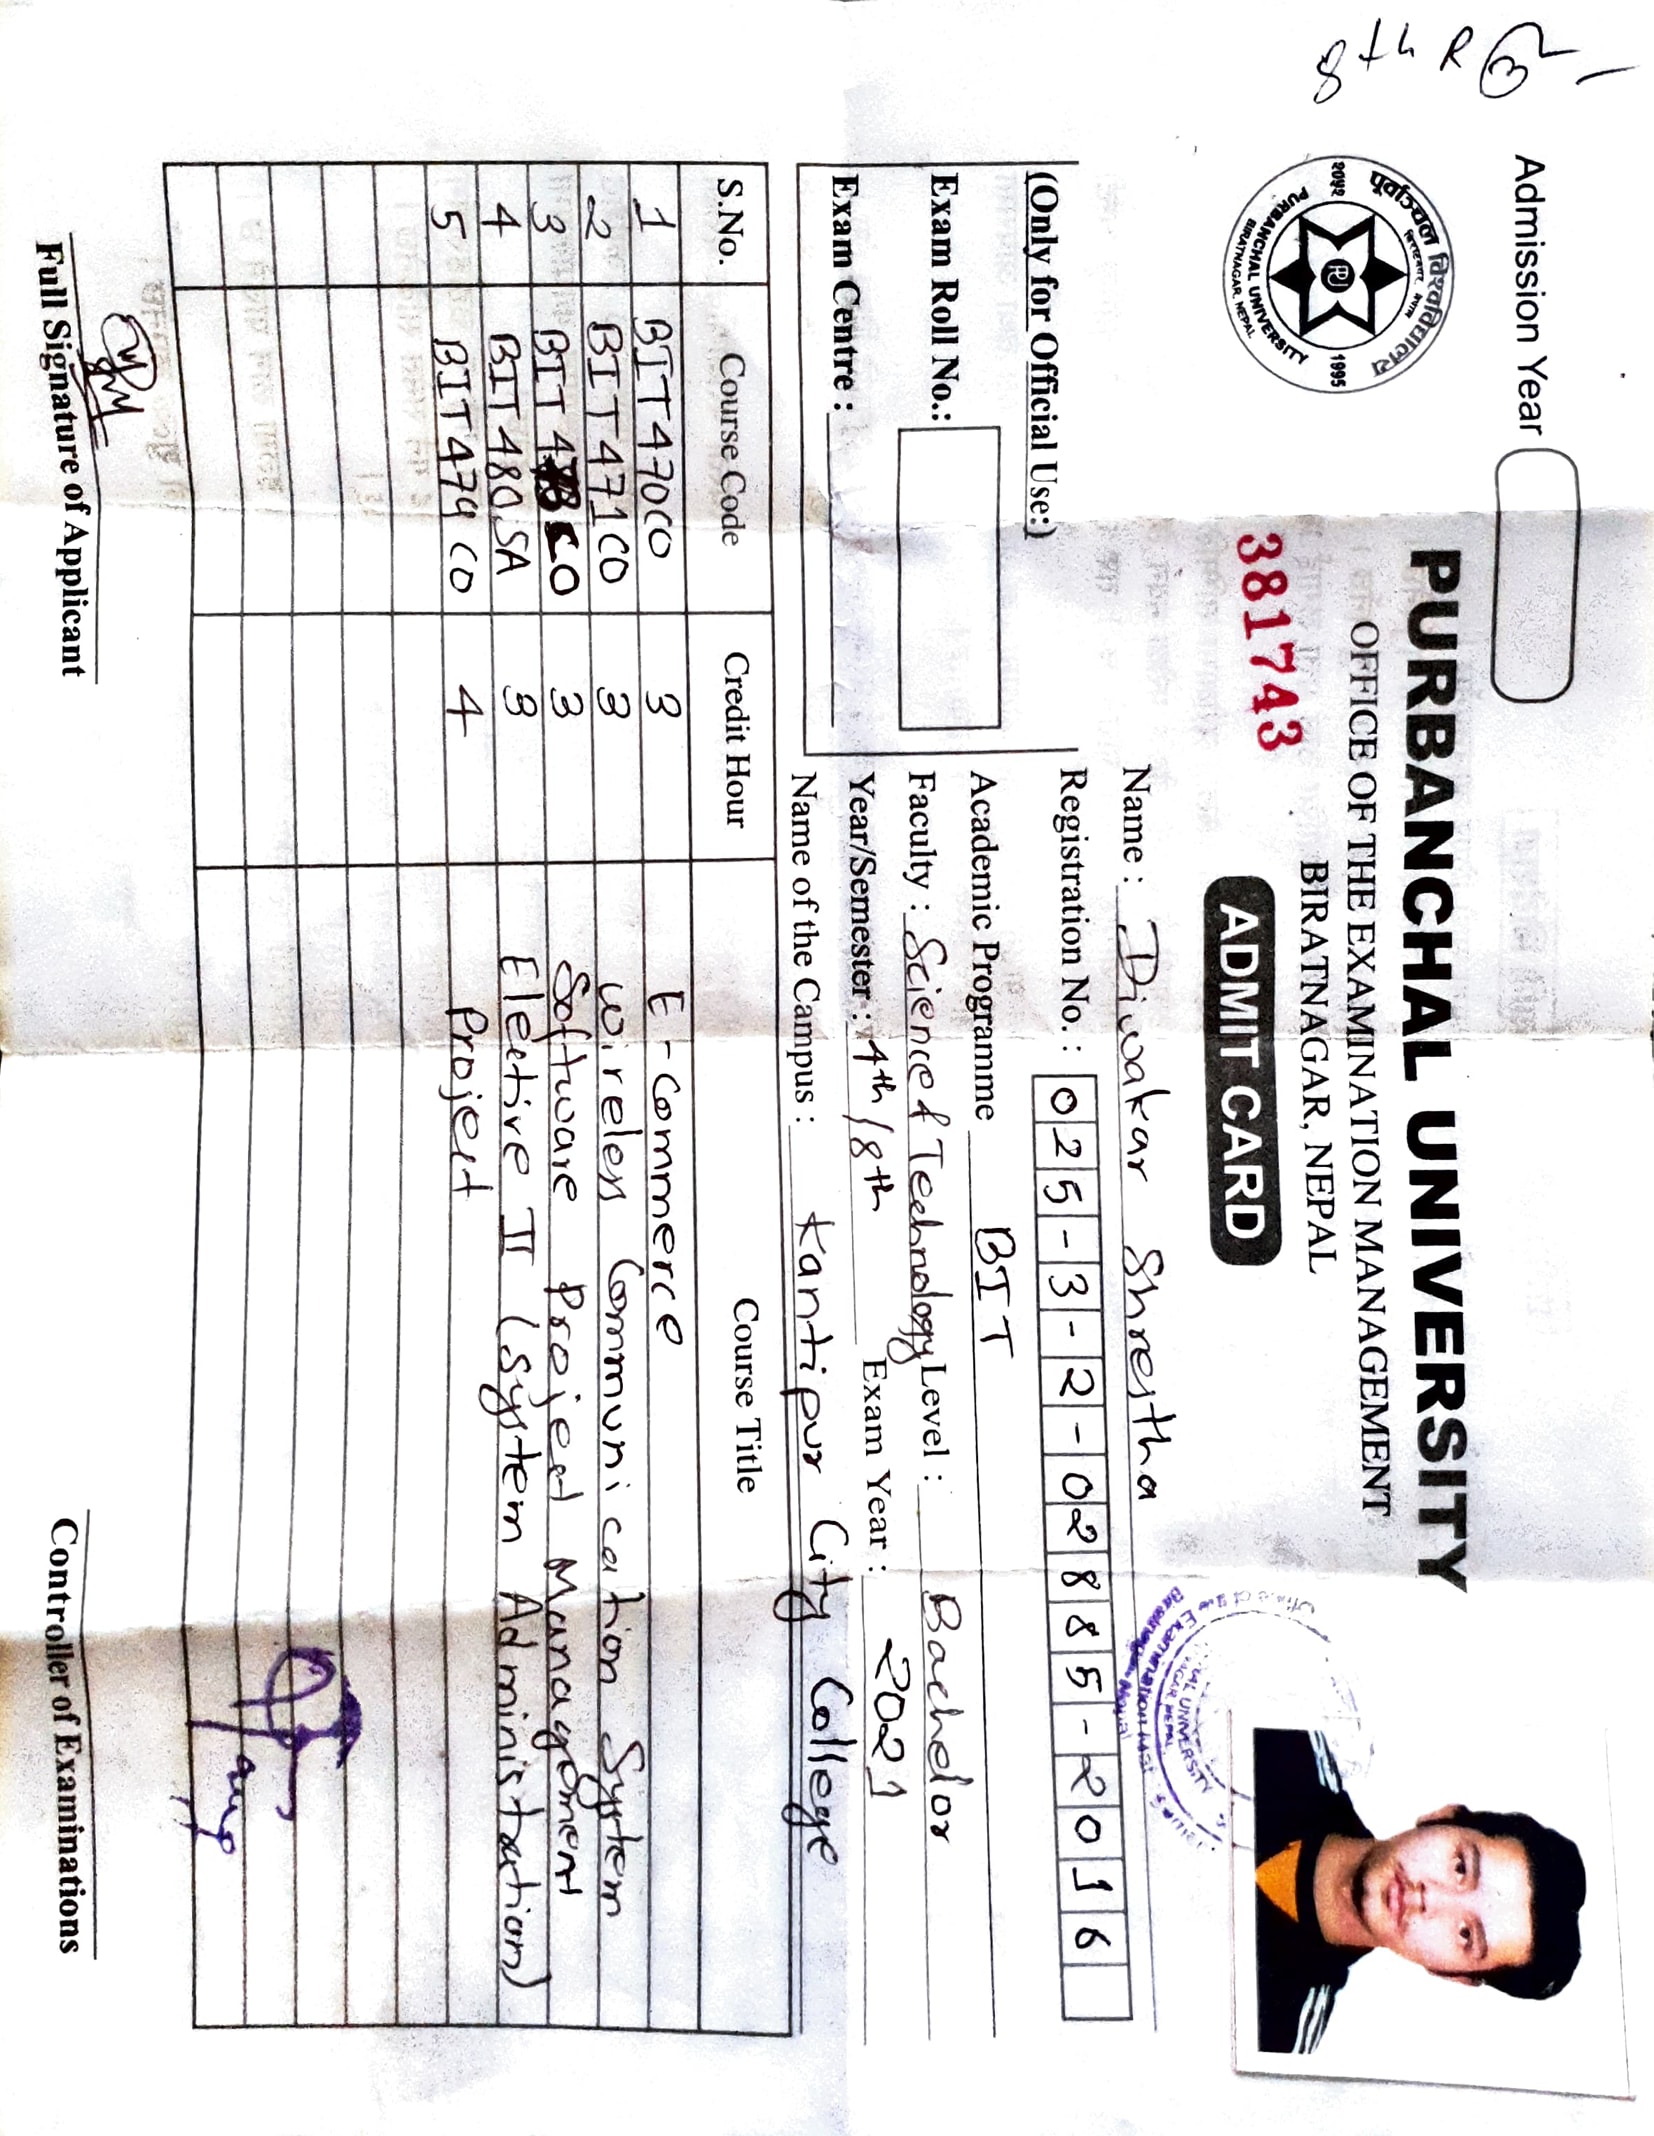 8th R
Admission Year
पूर्वाञ्चल विश्वविद्यालय
विराटनगर, नेपाल
२०५२ PU 1995
PURBANCHAL UNIVERSITY
BIRATNAGAR, NEPAL
PURBANCHAL UNIVERSITY
OFFICE OF THE EXAMINATION MANAGEMENT
BIRATNAGAR, NEPAL
381743
ADMIT CARD
Name : Diwakar Shrestha
Registration No. : 025-3-2-02885-2016
(Only for Official Use:)
Exam Roll No.:
Exam Centre :
Academic Programme BIT
Faculty : Science & Technology Level : Bachelor
Year/Semester : 4th / 8th Exam Year : 2021
Name of the Campus : Kantipur City College
S.No. Course Code Credit Hour Course Title
1 BIT470CO 3 E-Commerce
2 BIT471CO 3 Wireless Communication System
3 BIT CO 3 Software Project Management
4 BIT480SA 3 Elective II (System Administration)
5 BIT479CO 4 Project
Full Signature of Applicant
Controller of Examinations